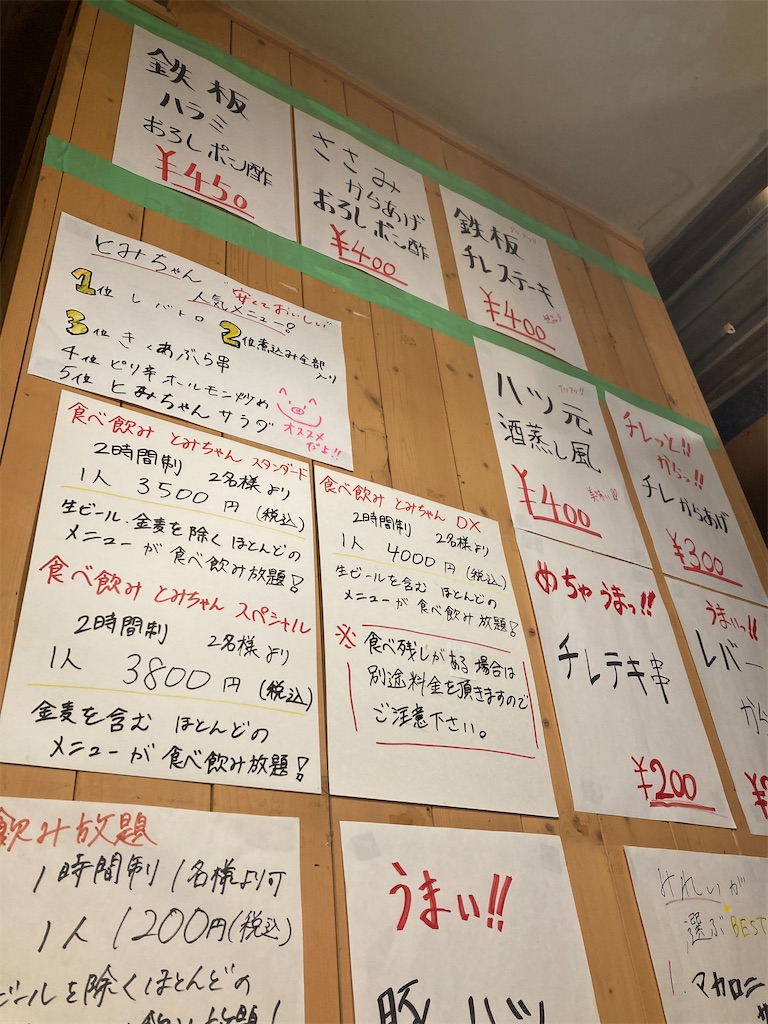 鉄板
ハラミ
おろしポン酢
¥450
ささみ
からあげ
おろしポン酢
¥400
鉄板
チレステーキ
¥400
とみちゃん "安くておいしい"
人気メニュー!
1位 レバトロ 2位煮込み全部入り
3位 きくあぶら串
4位 ピリ辛ホールモン炒め
5位 とみちゃんサラダ
オススメ
だよ!!
ハツ元
酒蒸し風
¥400
美味い!!
チレっと!!
からっ!!
チレからあげ
¥300
食べ飲み とみちゃん スタンダード
2時間制 2名様より
1人 3500円(税込)
生ビール・金麦を除くほとんどの
メニューが食べ飲み放題!
食べ飲み とみちゃん スペシャル
2時間制 2名様より
1人 3800円(税込)
金麦を含む ほとんどの
メニューが食べ飲み放題!
食べ飲み とみちゃん DX
2時間制 2名様より
1人 4000円(税込)
生ビールを含む ほとんどの
メニューが食べ飲み放題!
※食べ残しがある場合は
別途料金を頂きますので
ご注意下さい。
めちゃうまっ!!
チレテキ串
¥200
うまいっ!!
レバー
から
飲み放題
1時間制 1名様より可
1人 1200円(税込)
ビールを除くほとんどの
うまい!!
豚ハツ
みれいが
選ぶBEST
1. マカロニ